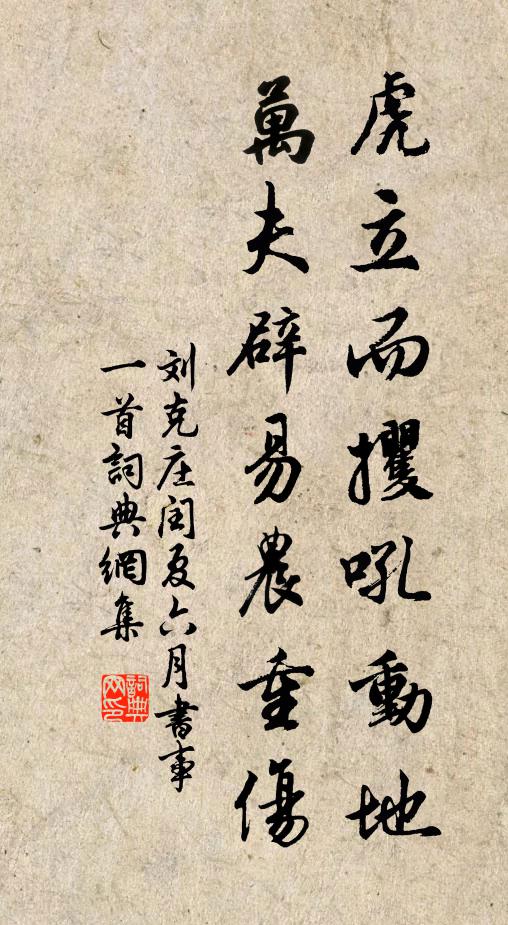 虎立而攫吼動地
萬夫辟易農重傷
刘克庄闰夏六月書事
一首詞典網集
詞典
网印